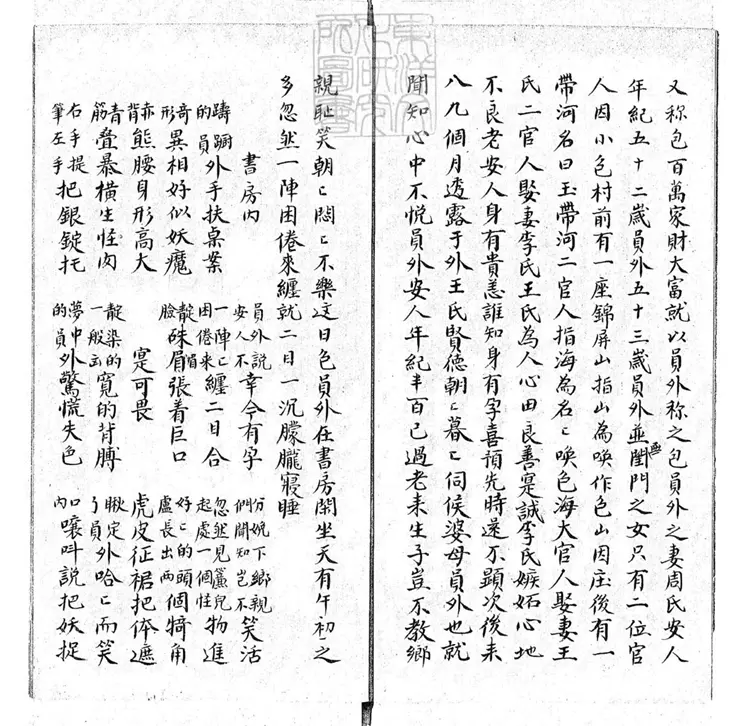 又称包百萬家財大富就以員外称之包員外之妻周氏安人
年紀五十二歲員外五十三歲員外並無閨門之女只有二位官
人因小包村前有一座錦屏山指山為喚作包山因庄後有一
帶河名曰玉帶河二官人指海為名〻喚包海大官人娶妻王
氏二官人娶妻李氏王氏為人心田良善寔誠李氏嫉妬心地
不良老安人身有貴恙誰知身有孕喜預先時還不顯次後来
八九個月透露于外王氏賢德朝〻暮〻伺候婆母員外也就
聞知心中不悦員外安人年紀半百已過老来生子豈不教鄉
親耻笑朝〻悶〻不樂这日包員外在書房閑坐天有午初之
多忽然一陣困倦來纏就二目一沉朦朧寢睡
書房内 員外說安人不幸今有孕 分娩下鄉親們聞知豈不笑活
躊躕的員外手扶桌案 一陣〻困倦来纏二目合 忽然見簾兒起處一個性物進
奇形異相好似妖魔 靛臉硃眉張着巨口 好〻的頭盧長出兩個犄角
赤背熊腰身形高大 寔可畏 虎皮征裙把体遮
青筋叠暴橫生怪肉 靛染的一般寬的背膊 瞅定了員外哈〻而笑
右手提筆左手把銀錠托 夢中的員外驚慌失色 口内嚷呌說把妖捉